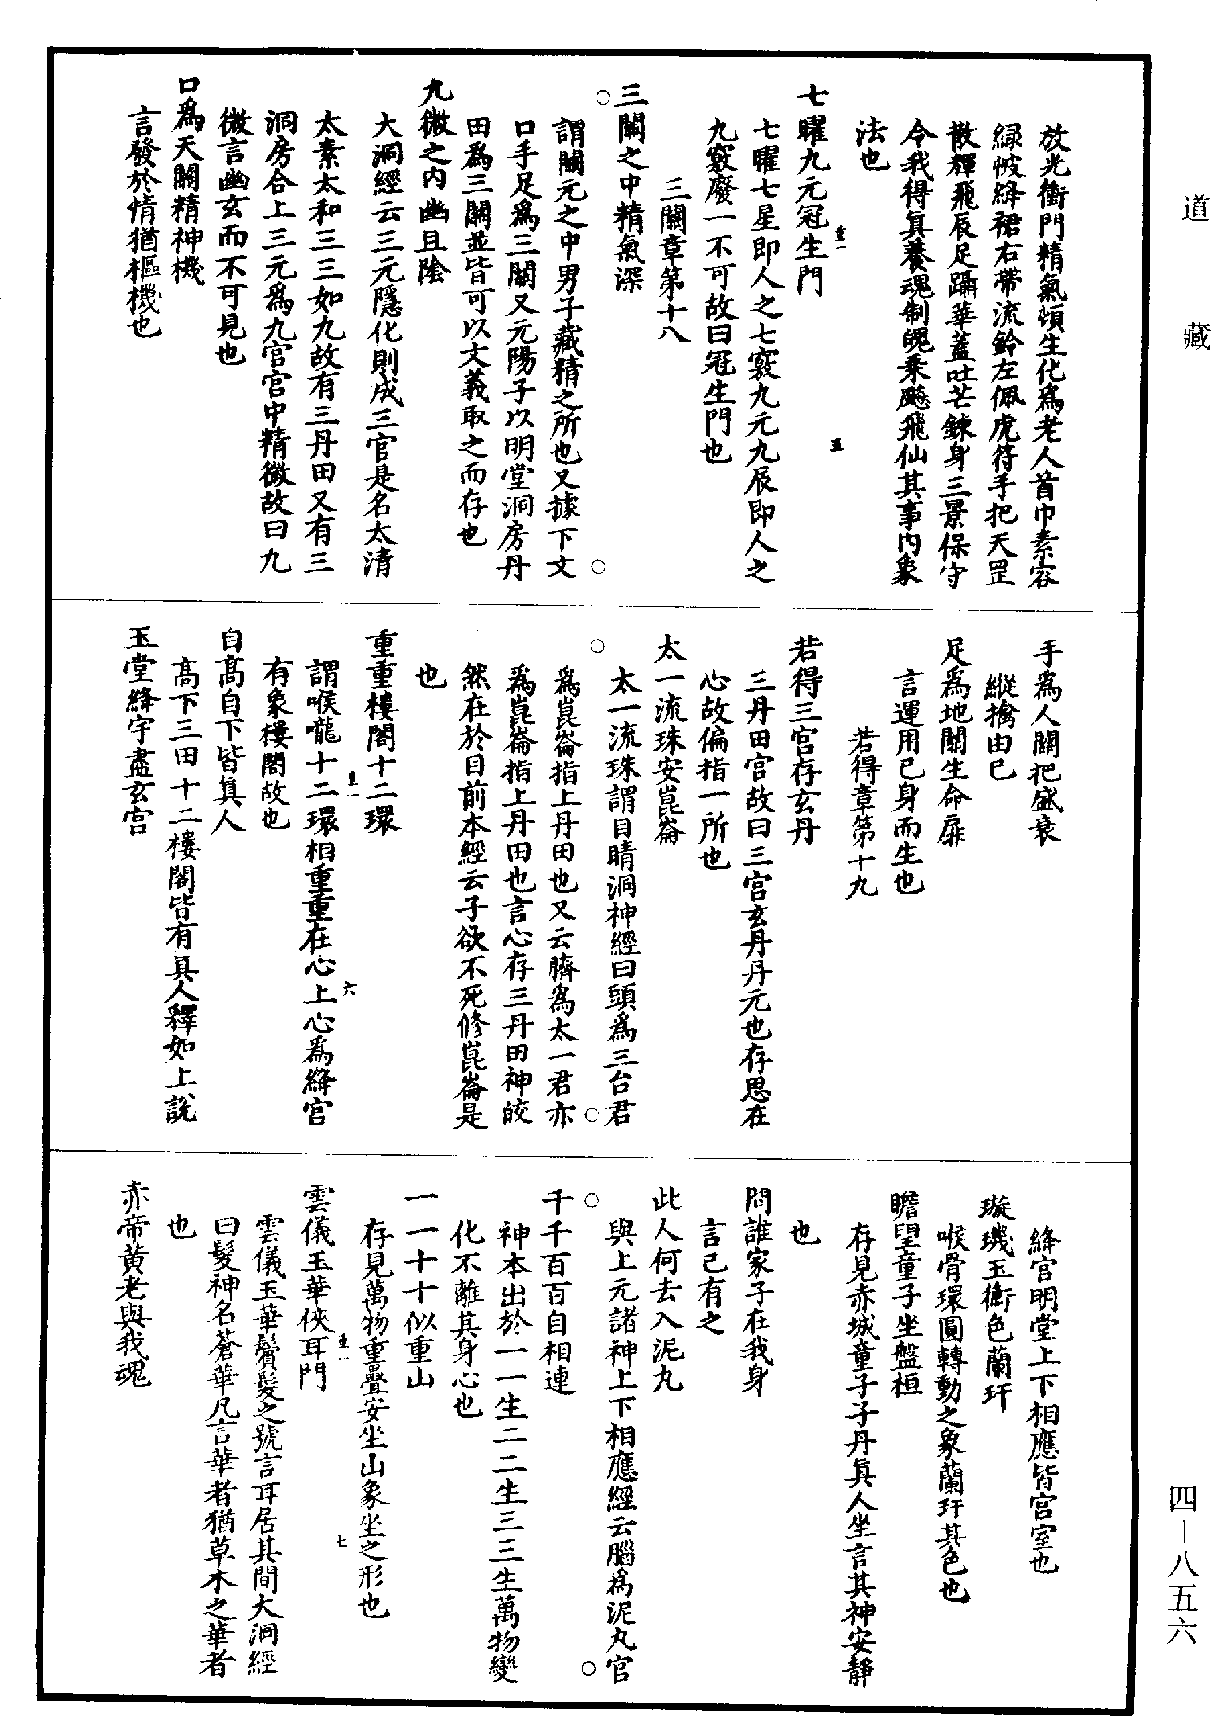 道藏
放光衝門精氣頓生化爲老人首巾素容
綠帔絳裙右帶流鈴左佩虎符手把天罡
散輝飛辰足躡華蓋吐芒鍊身三景保守
令我得眞養魂制魄乘飈飛仙其事內象
法也
七曜九元冠生門
七曜七星即人之七竅九元九辰即人之
九竅廢一不可故曰冠生門也
三關章第十八
三關之中精氣深
謂關元之中男子藏精之所也又據下文
口手足爲三關又元陽子以明堂洞房丹
田爲三關並皆可以文義取之而存也
九微之內幽且陰
大洞經云三元隱化則成三宮是名太清
太素太和三三如九故有三丹田又有三
洞房合上三元爲九宮宮中精微故曰九
微言幽玄而不可見也
口爲天關精神機
言發於情猶樞機也
手爲人關把盛衰
縱擒由己
足爲地關生命扉
言運用己身而生也
若得章第十九
若得三宮存玄丹
三丹田宮故曰三宮玄丹丹元也存思在
心故偏指一所也
太一流珠安崑崙
太一流珠謂目睛洞神經曰頭爲三台君
爲崑崙指上丹田也又云臍爲太一君亦
爲崑崙指上丹田也言心存三丹田神皎
然在於目前本經云子欲不死修崑崙是
也
重重樓閣十二環
謂喉嚨十二環相重重在心上心爲絳宮
有象樓閣故也
自高自下皆眞人
高下三田十二樓閣皆有眞人釋如上說
玉堂絳宇盡玄宮
絳宮明堂上下相應皆宮室也
璇璣玉衡色蘭玕
喉骨環圓轉動之象蘭玕其色也
瞻望童子坐盤桓
存見赤城童子子丹眞人坐言其神安靜
也
問誰家子在我身
言己有之
此人何去入泥丸
與上元諸神上下相應經云腦爲泥丸宮
千千百百自相連
神本出於一一生二二生三三生萬物變
化不離其身心也
一一十十似重山
存見萬物重疊安坐山象坐之形也
雲儀玉華俠耳門
雲儀玉華鬢髮之號言耳居其間大洞經
曰髮神名蒼華凡言華者猶草木之華者
也
赤帝黃老與我魂
四—八五六